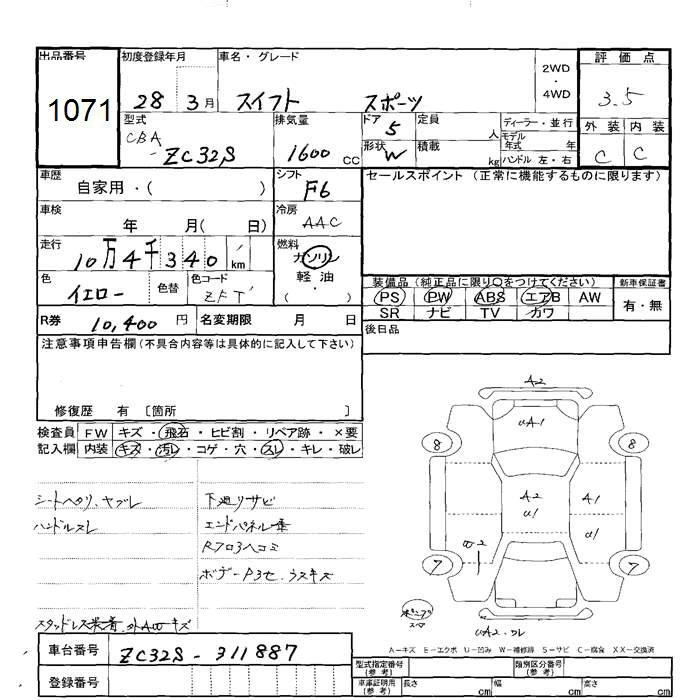 出品番号 初度登録年月 車名・グレード 2WD・4WD 評価点
1071 28 3月 スイフト スポーツ 3.5
型式 排気量 ドア 定員 ディーラー・並行 外装 内装
CBA-ZC32S 1600cc 5 人 モデル年式 年 C C
形状 W 積載 kg ハンドル 左・右
車歴 自家用・( ) シフト F6 セールスポイント (正常に機能するものに限ります)
車検 年 月( 日) 冷房 AAC
走行 10万4千340 km 燃料 ガソリン・軽油 ( )
色 イエロー 色替 色コード ZFT
装備品(純正品に限り○をつけてください) 新車保証書
PS PW ABS エアB AW 有・無
SR ナビ TV カワ
R券 10,400円 名変期限 月 日 後日品
注意事項申告欄(不具合内容等は具体的に記入して下さい)
修復歴 有 [箇所 ]
検査員 FW キズ・飛石・ヒビ割・リペア跡・×要
記入欄 内装 キズ・汚レ・コゲ・穴・スレ・キレ・破レ
A2
UA1
8 8
A2 A1
U1 U1
7 7
シートヘタリ、ヤブレ 下廻りサビ
ハンドルスレ
ヘコミ
スタッドレス装着
A-キズ E-エクボ U-凹み W-補修跡 S-サビ C-腐食 XX-交換済
車台番号 ZC32S-311887
登録番号
型式指定番号(参考) 類別区分番号(参考)
車庫証明用(参考) 長さ cm 幅 cm 高さ cm